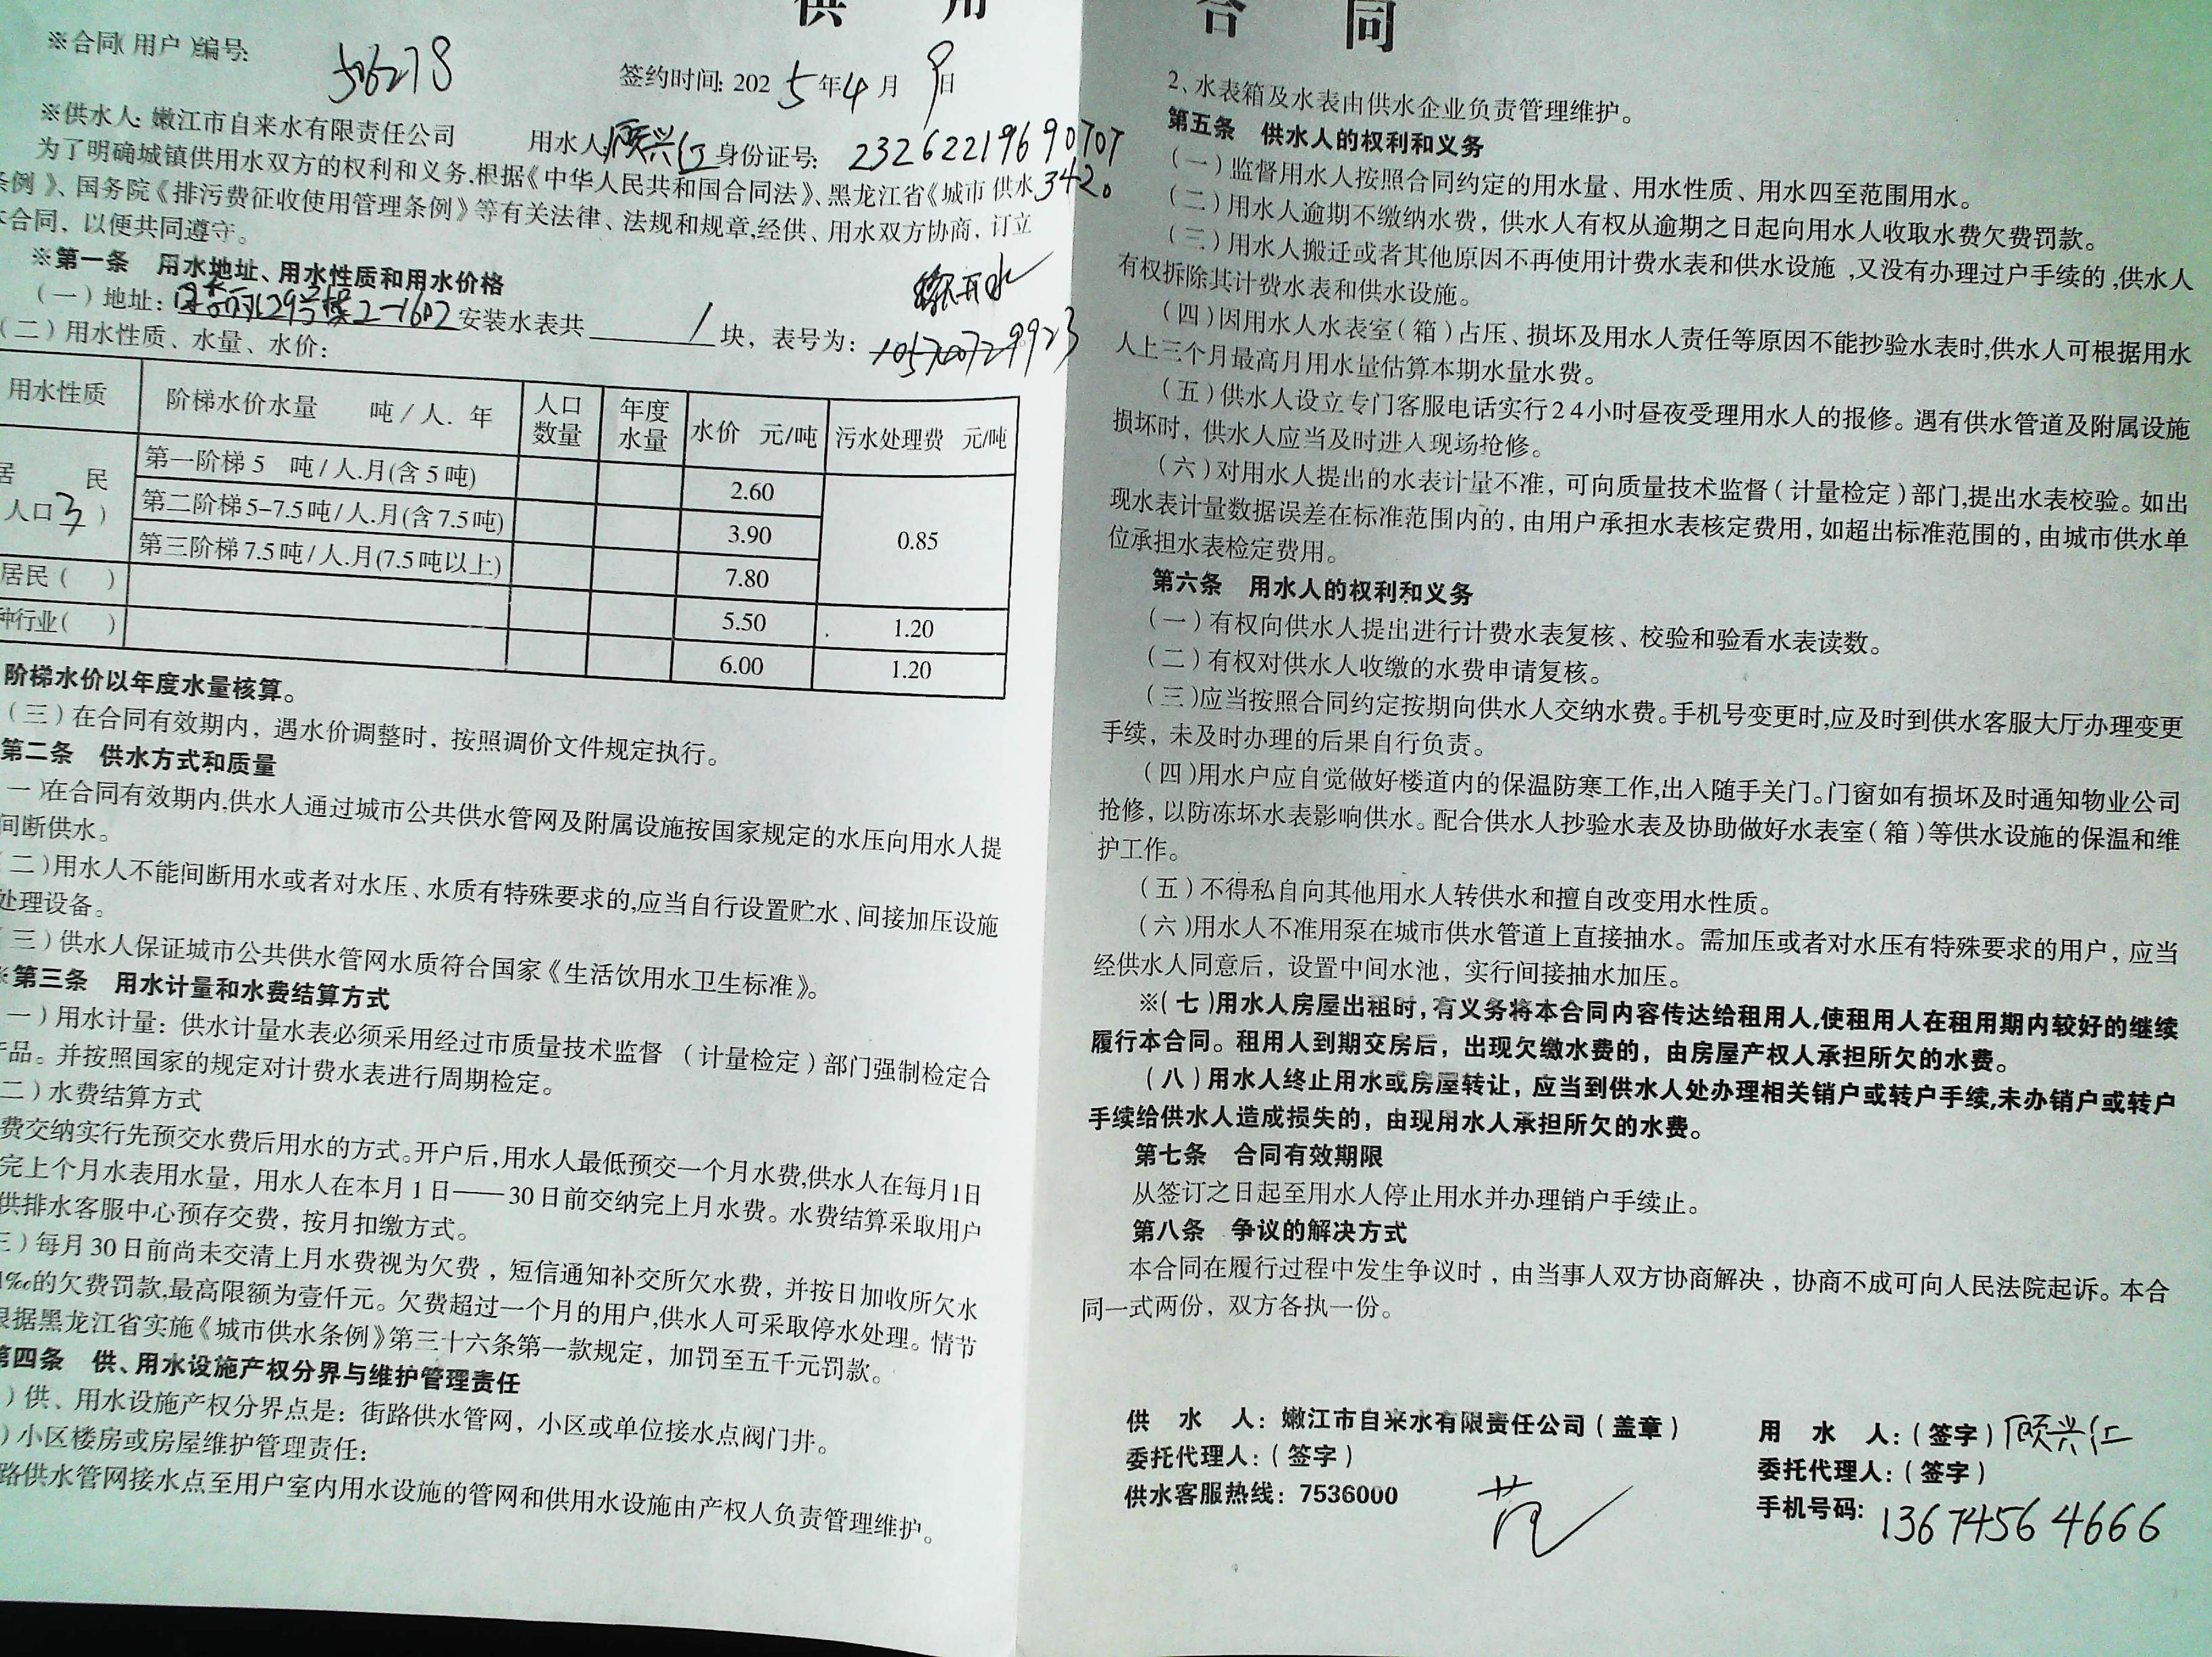 供 用 合 同
※合同(用户)编号: 506278
签约时间: 2025年4月9日
※供水人: 嫩江市自来水有限责任公司 用水人: 顾兴仁 身份证号: 232622196907073420
为了明确城镇供用水双方的权利和义务,根据《中华人民共和国合同法》、黑龙江省《城市供水
条例》、国务院《排污费征收使用管理条例》等有关法律、法规和规章,经供、用水双方协商, 订立
本合同, 以便共同遵守。
※第一条 用水地址、用水性质和用水价格
(一)地址: 29号楼2-1602 安装水表共 1 块, 表号为:
(二)用水性质、水量、水价:
用水性质 阶梯水价水量 吨/人. 年 人口数量 年度水量 水价 元/吨 污水处理费 元/吨
居 民 第一阶梯 5 吨/人.月(含5吨) 2.60 0.85
人口3) 第二阶梯5-7.5吨/人.月(含7.5吨) 3.90
第三阶梯7.5吨/人.月(7.5吨以上) 7.80
居民( ) 5.50 1.20
种行业( ) 6.00 1.20
阶梯水价以年度水量核算。
(三)在合同有效期内, 遇水价调整时, 按照调价文件规定执行。
第二条 供水方式和质量
一)在合同有效期内,供水人通过城市公共供水管网及附属设施按国家规定的水压向用水人提
间断供水。
(二)用水人不能间断用水或者对水压、水质有特殊要求的,应当自行设置贮水、间接加压设施
处理设备。
(三)供水人保证城市公共供水管网水质符合国家《生活饮用水卫生标准》。
※第三条 用水计量和水费结算方式
一)用水计量: 供水计量水表必须采用经过市质量技术监督 (计量检定)部门强制检定合
产品。并按照国家的规定对计费水表进行周期检定。
二)水费结算方式
费交纳实行先预交水费后用水的方式。开户后,用水人最低预交一个月水费,供水人在每月1日
完上个月水表用水量, 用水人在本月1日——30日前交纳完上月水费。水费结算采取用户
供排水客服中心预存交费, 按月扣缴方式。
三)每月30日前尚未交清上月水费视为欠费, 短信通知补交所欠水费, 并按日加收所欠水
1‰的欠费罚款,最高限额为壹仟元。欠费超过一个月的用户,供水人可采取停水处理。情节
根据黑龙江省实施《城市供水条例》第三十六条第一款规定, 加罚至五千元罚款。
第四条 供、用水设施产权分界与维护管理责任
)供、用水设施产权分界点是: 街路供水管网, 小区或单位接水点阀门井。
)小区楼房或房屋维护管理责任:
路供水管网接水点至用户室内用水设施的管网和供用水设施由产权人负责管理维护。
2、水表箱及水表由供水企业负责管理维护。
第五条 供水人的权利和义务
(一)监督用水人按照合同约定的用水量、用水性质、用水四至范围用水。
(二)用水人逾期不缴纳水费, 供水人有权从逾期之日起向用水人收取水费欠费罚款。
(三)用水人搬迁或者其他原因不再使用计费水表和供水设施,又没有办理过户手续的,供水人
有权拆除其计费水表和供水设施。
(四)因用水人水表室(箱)占压、损坏及用水人责任等原因不能抄验水表时,供水人可根据用水
人上三个月最高月用水量估算本期水量水费。
(五)供水人设立专门客服电话实行24小时昼夜受理用水人的报修。遇有供水管道及附属设施
损坏时, 供水人应当及时进入现场抢修。
(六)对用水人提出的水表计量不准, 可向质量技术监督(计量检定)部门,提出水表校验。如出
现水表计量数据误差在标准范围内的, 由用户承担水表核定费用, 如超出标准范围的, 由城市供水单
位承担水表检定费用。
第六条 用水人的权利和义务
(一)有权向供水人提出进行计费水表复核、校验和验看水表读数。
(二)有权对供水人收缴的水费申请复核。
(三)应当按照合同约定按期向供水人交纳水费。手机号变更时,应及时到供水客服大厅办理变更
手续, 未及时办理的后果自行负责。
(四)用水户应自觉做好楼道内的保温防寒工作,出入随手关门。门窗如有损坏及时通知物业公司
抢修, 以防冻坏水表影响供水。配合供水人抄验水表及协助做好水表室(箱)等供水设施的保温和维
护工作。
(五)不得私自向其他用水人转供水和擅自改变用水性质。
(六)用水人不准用泵在城市供水管道上直接抽水。需加压或者对水压有特殊要求的用户, 应当
经供水人同意后, 设置中间水池, 实行间接抽水加压。
※(七)用水人房屋出租时, 有义务将本合同内容传达给租用人,使租用人在租用期内较好的继续
履行本合同。租用人到期交房后, 出现欠缴水费的, 由房屋产权人承担所欠的水费。
(八)用水人终止用水或房屋转让, 应当到供水人处办理相关销户或转户手续,未办销户或转户
手续给供水人造成损失的, 由现用水人承担所欠的水费。
第七条 合同有效期限
从签订之日起至用水人停止用水并办理销户手续止。
第八条 争议的解决方式
本合同在履行过程中发生争议时, 由当事人双方协商解决, 协商不成可向人民法院起诉。本合
同一式两份, 双方各执一份。
供 水 人: 嫩江市自来水有限责任公司(盖章)
委托代理人:(签字)
供水客服热线: 7536000
范
用 水 人:(签字)顾兴仁
委托代理人:(签字)
手机号码: 13674564666